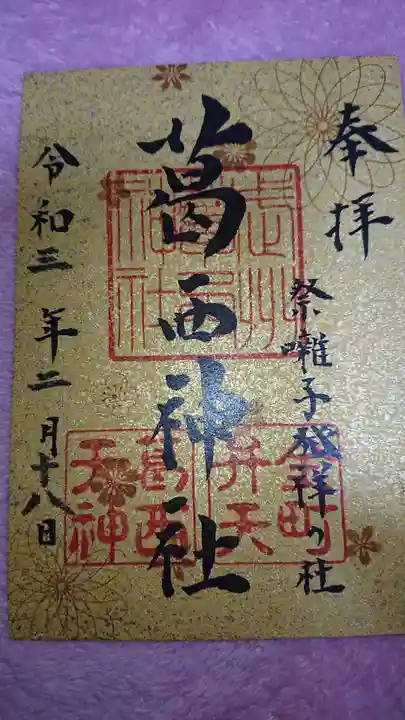 奉拝
祭囃子発祥の社
葛西神社
令和三年二月十八日
葛西神社
弁天
葛西
天神